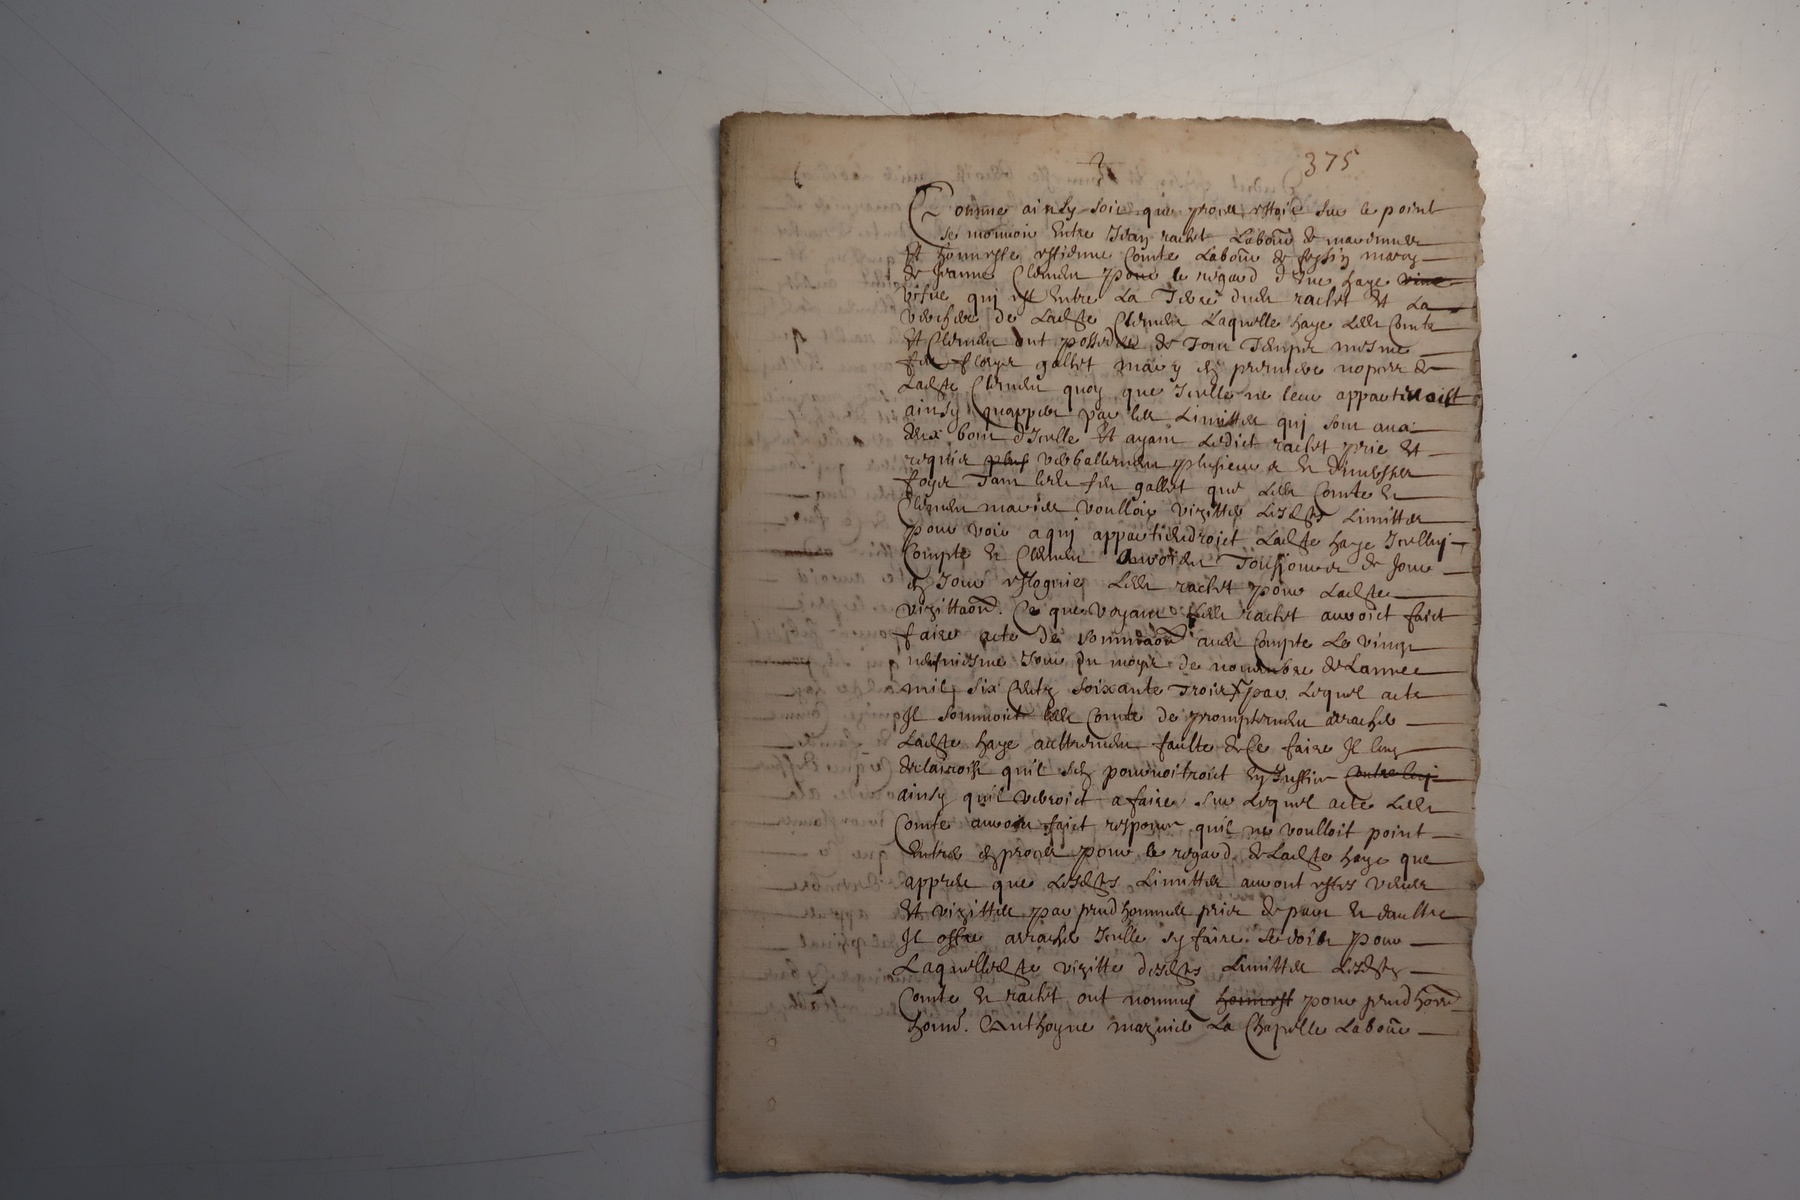 375
Comme ainsy soit que proces estoit sur le point
de mouvoir entre Jean rachet Labour de
Et honneste estienne Comte Labour de mary
de Jeanne Clemen pour le regard d'une haye vive
visve qui est entre La Terre dud rachet Et La
verchere de Ladte Clemen Laquelle haye Led Comte
Et Clemen ont possedee de Tout Temps mesme
feu gallet mary en premiere nopces de
Ladte Clemen quoy que Icelle ne leur appartenoist
ainsy quappert par les Limittes qui sont aux
deux bout d'Icelle Et ayant Ledict rachet prie Et
requis plus verballemen plusieurs et diverses
foys Tant led feu gallet que Led Comte et
Clemen mariés voulloir vizitter Lesdts Limittes
pour voir a qui appartiendroict Ladte haye Icelluy
Compte et Clemen auroien Tousjours de Jour
en Jour esloignes Led rachet pour Ladte
vizittaon. Ce que voyant Led rachet auroict faict
faire acte de sommaon aud Compte Le vingt
neufviesme Jour du moys de novembre de Lannee
mil six centz soixante Trois par Lequel acte
Il sommoit led Comte de promptemen arracher
Ladte haye aultremen faulte de Ce faire Il luy
declairoist qu'il sen pourvoitroict en Justice Contre luy
ainsy quil verroict a faire Sur Lequel acte Led
Comte auroit faict responce quil ne voulloit point
Entrer en proces pour le regard de Ladte haye que
appres que Lesdts Limittes auront estes veues
Et vizittes par prudhommes pris de part et daultre
Il offre arracher Icelle sy faire se doibt pour
Laquelle dte vizitte desdts Limittes Lesdts
Comte Et rachet ont nommes honnest pour prudhom
hon. Anthoyne La Chapelle Labour